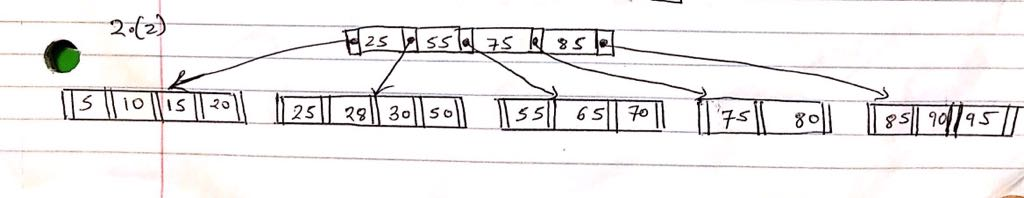 2.(2)
25 55 75 85
5 10 15 20 25 28 30 50 55 65 70 75 80 85 90 95